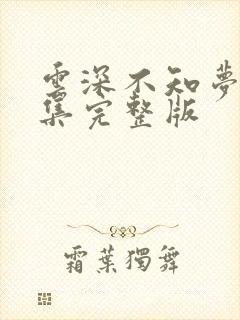 雲深不知夢
集完整版
霜葉獨舞